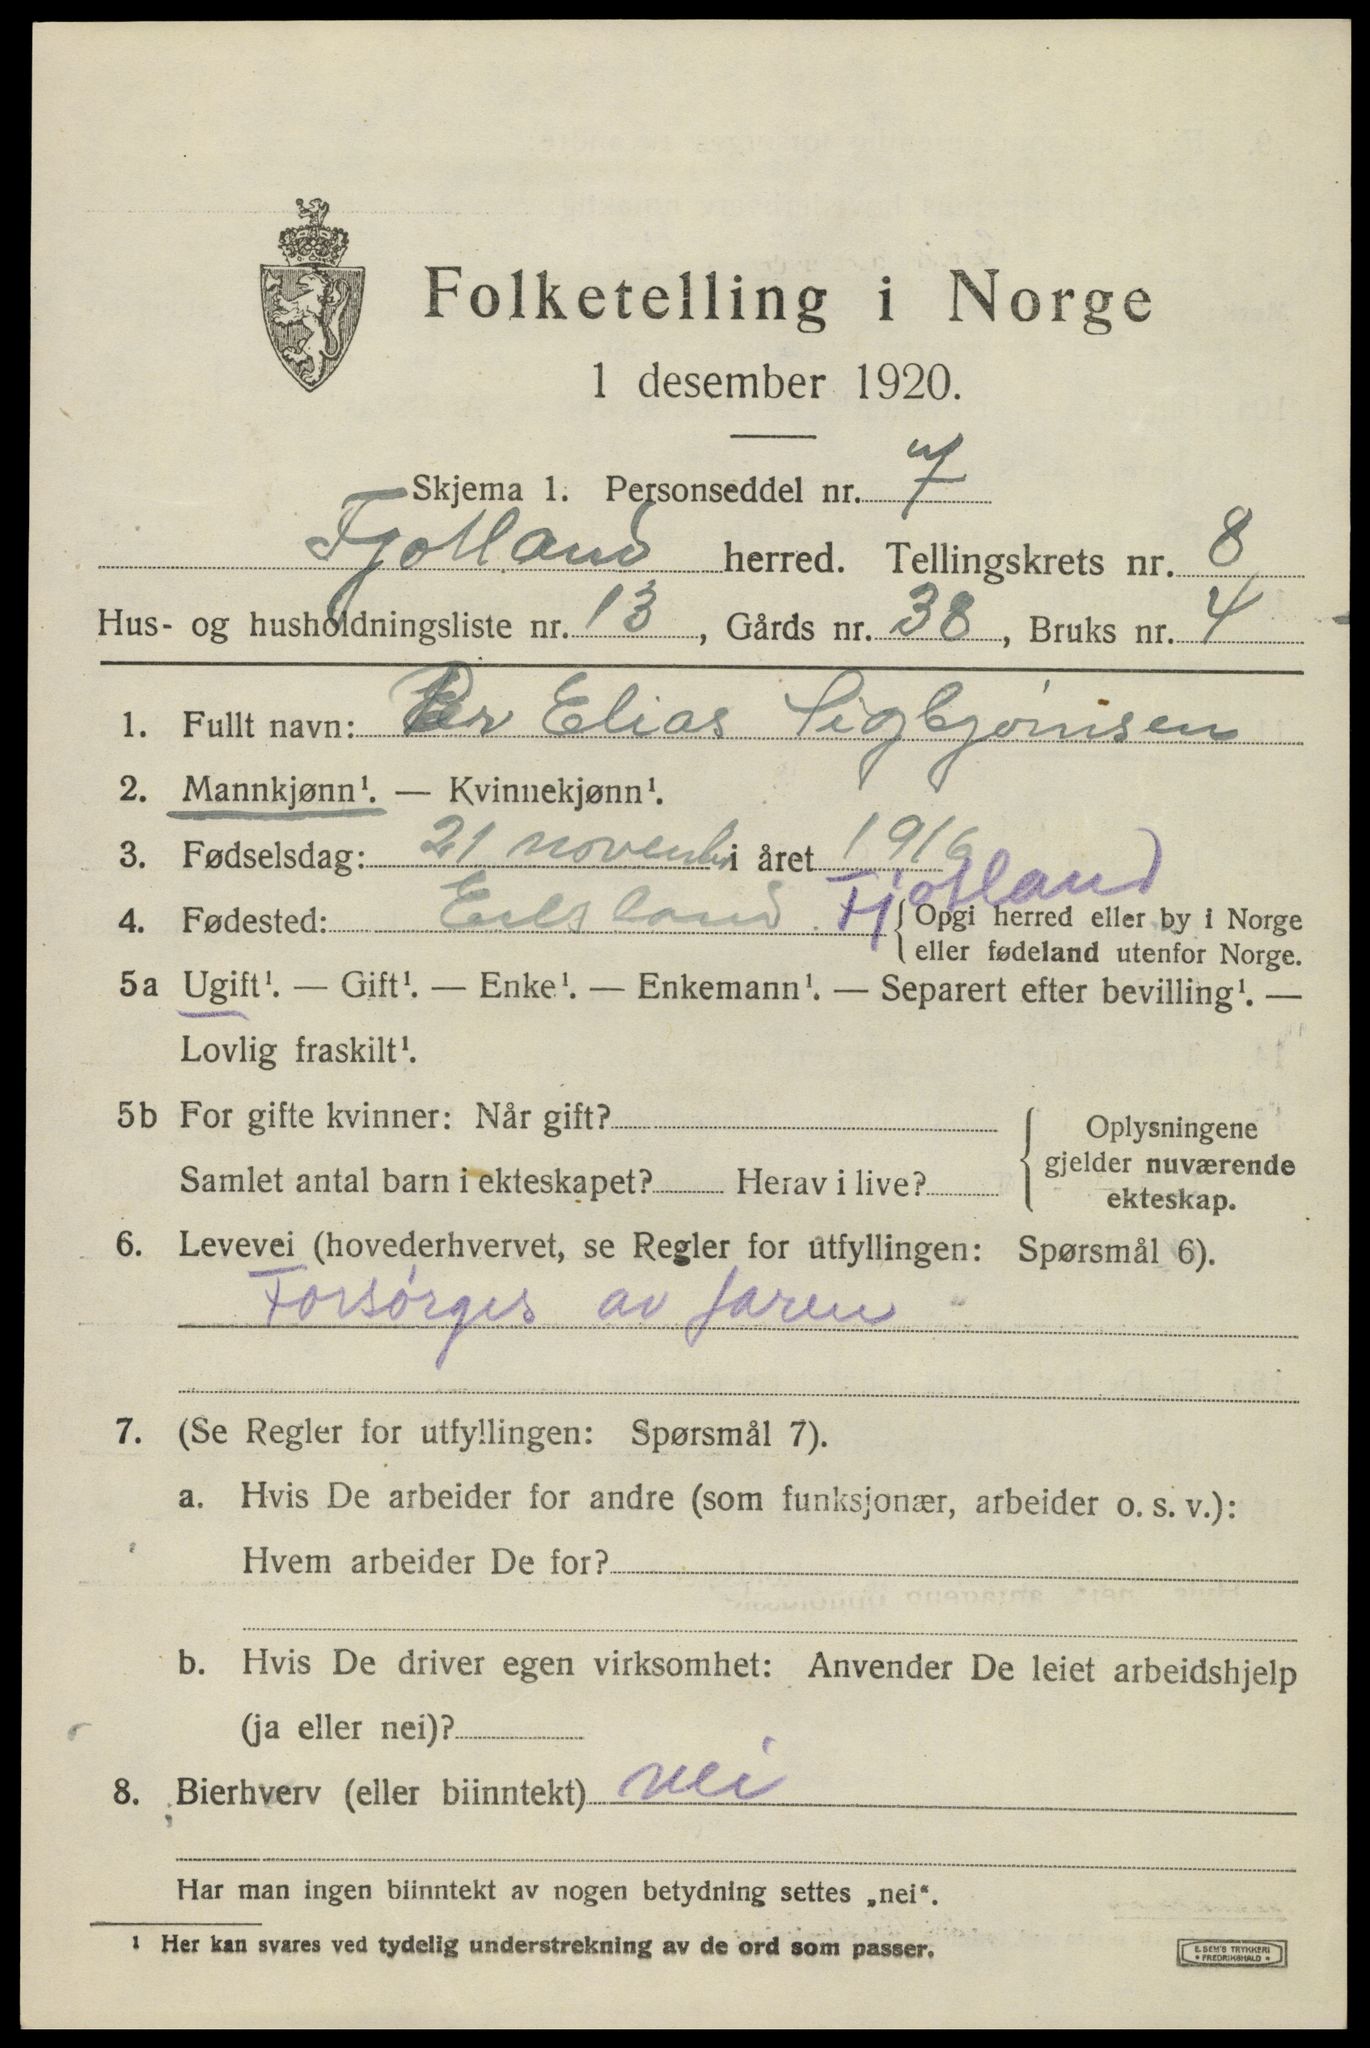 Folketelling i Norge
1 desember 1920.
Skjema 1. Personseddel nr. 7
Fjotland herred. Tellingskrets nr. 8
Hus- og husholdningsliste nr. 13, Gårds nr. 38, Bruks nr. 4
1. Fullt navn: Per Elias Sigbjørnsen
2. Mannkjønn¹. — Kvinnekjønn¹.
3. Fødselsdag: 21 novemb. i året 1916
4. Fødested: Fjotland { Opgi herred eller by i Norge
eller fødeland utenfor Norge.
5a Ugift¹. — Gift¹. — Enke¹. — Enkemann¹. — Separert efter bevilling¹. —
Lovlig fraskilt¹.
5b For gifte kvinner: Når gift? { Oplysningene
gjelder nuværende
Samlet antal barn i ekteskapet? Herav i live? ekteskap.
6. Levevei (hovederhvervet, se Regler for utfyllingen: Spørsmål 6).
Forsørges av faren
7. (Se Regler for utfyllingen: Spørsmål 7).
a. Hvis De arbeider for andre (som funksjonær, arbeider o. s. v.):
Hvem arbeider De for?
b. Hvis De driver egen virksomhet: Anvender De leiet arbeidshjelp
(ja eller nei)?
8. Bierhverv (eller biinntekt) nei
Har man ingen biinntekt av nogen betydning settes „nei“.
¹ Her kan svares ved tydelig understrekning av de ord som passer.
E. SEM'S TRYKKERI
• FREDRIKSHALD •